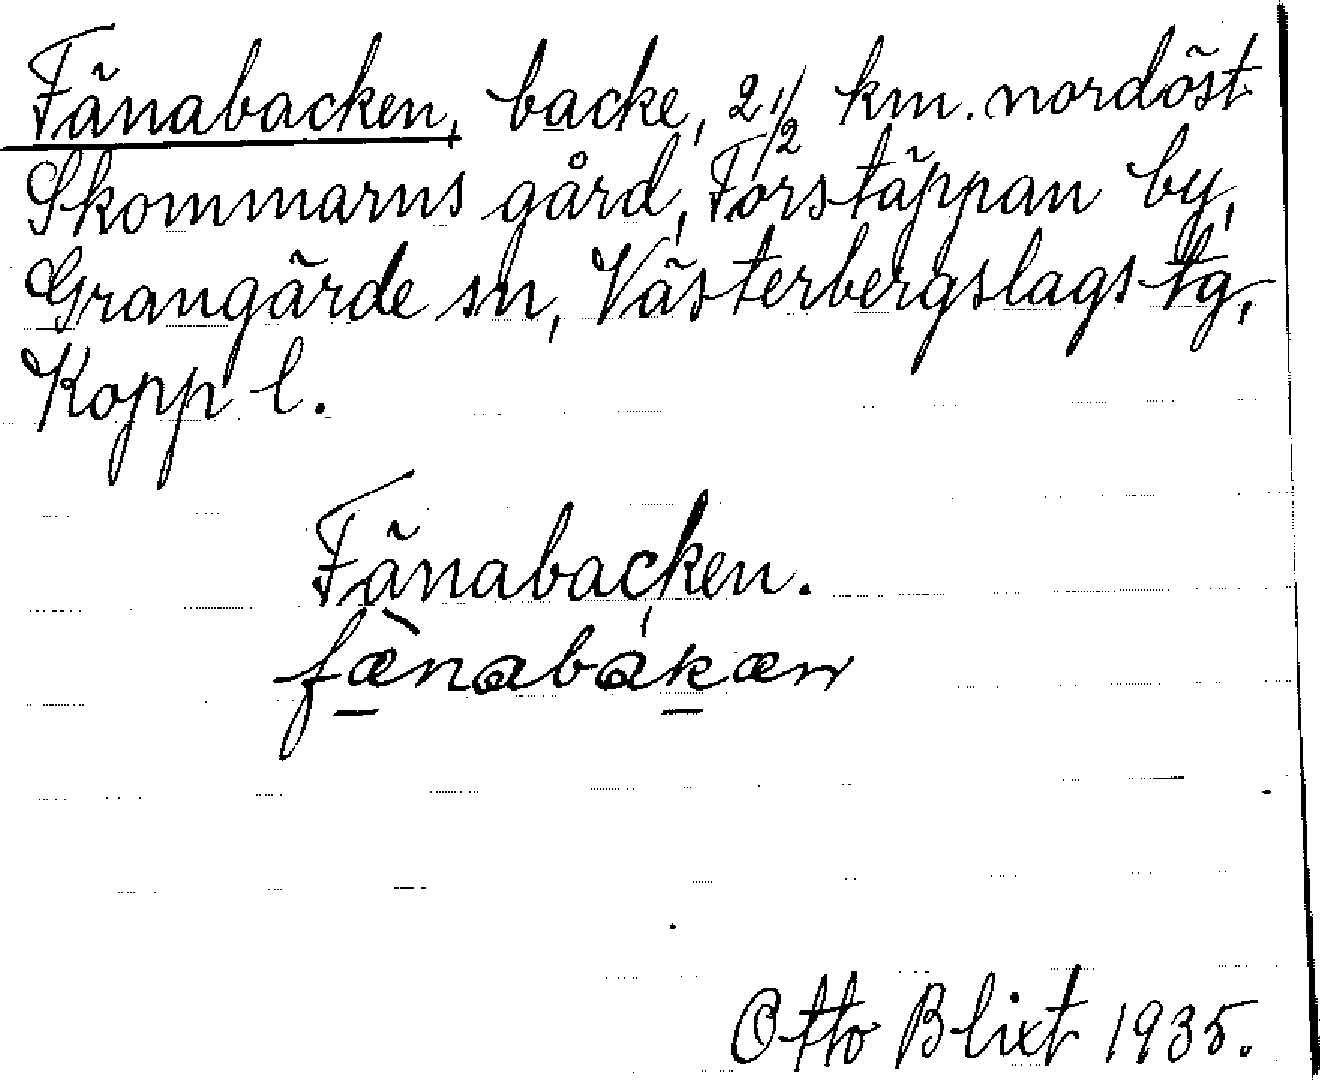 Fänabacken, backe, 2 1/2 km. nordöst
Skommarns gård, Forstäppan by,
Grangärde sn, Västerbergslags tg,
Kopp l.
Fänabacken.
fæ̀nabákæn
Otto Blixt 1935.